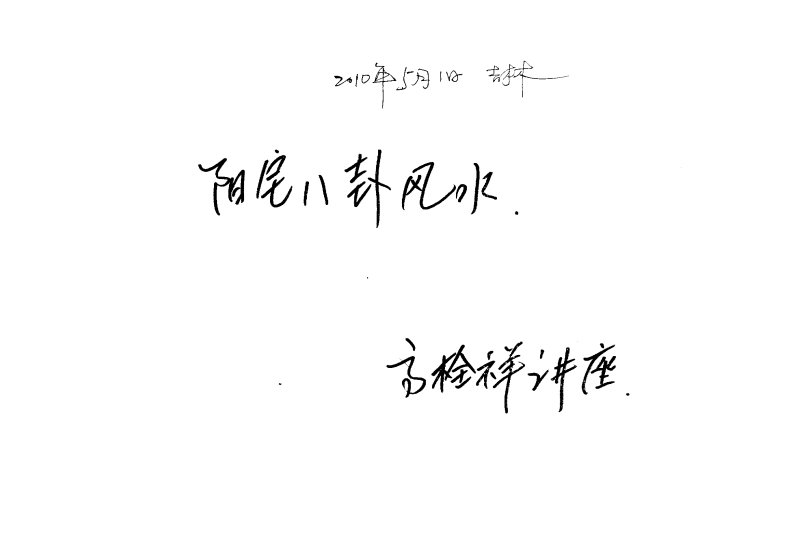 2010年5月1日 吉林
阳宅八卦风水.
高栓祥讲座.